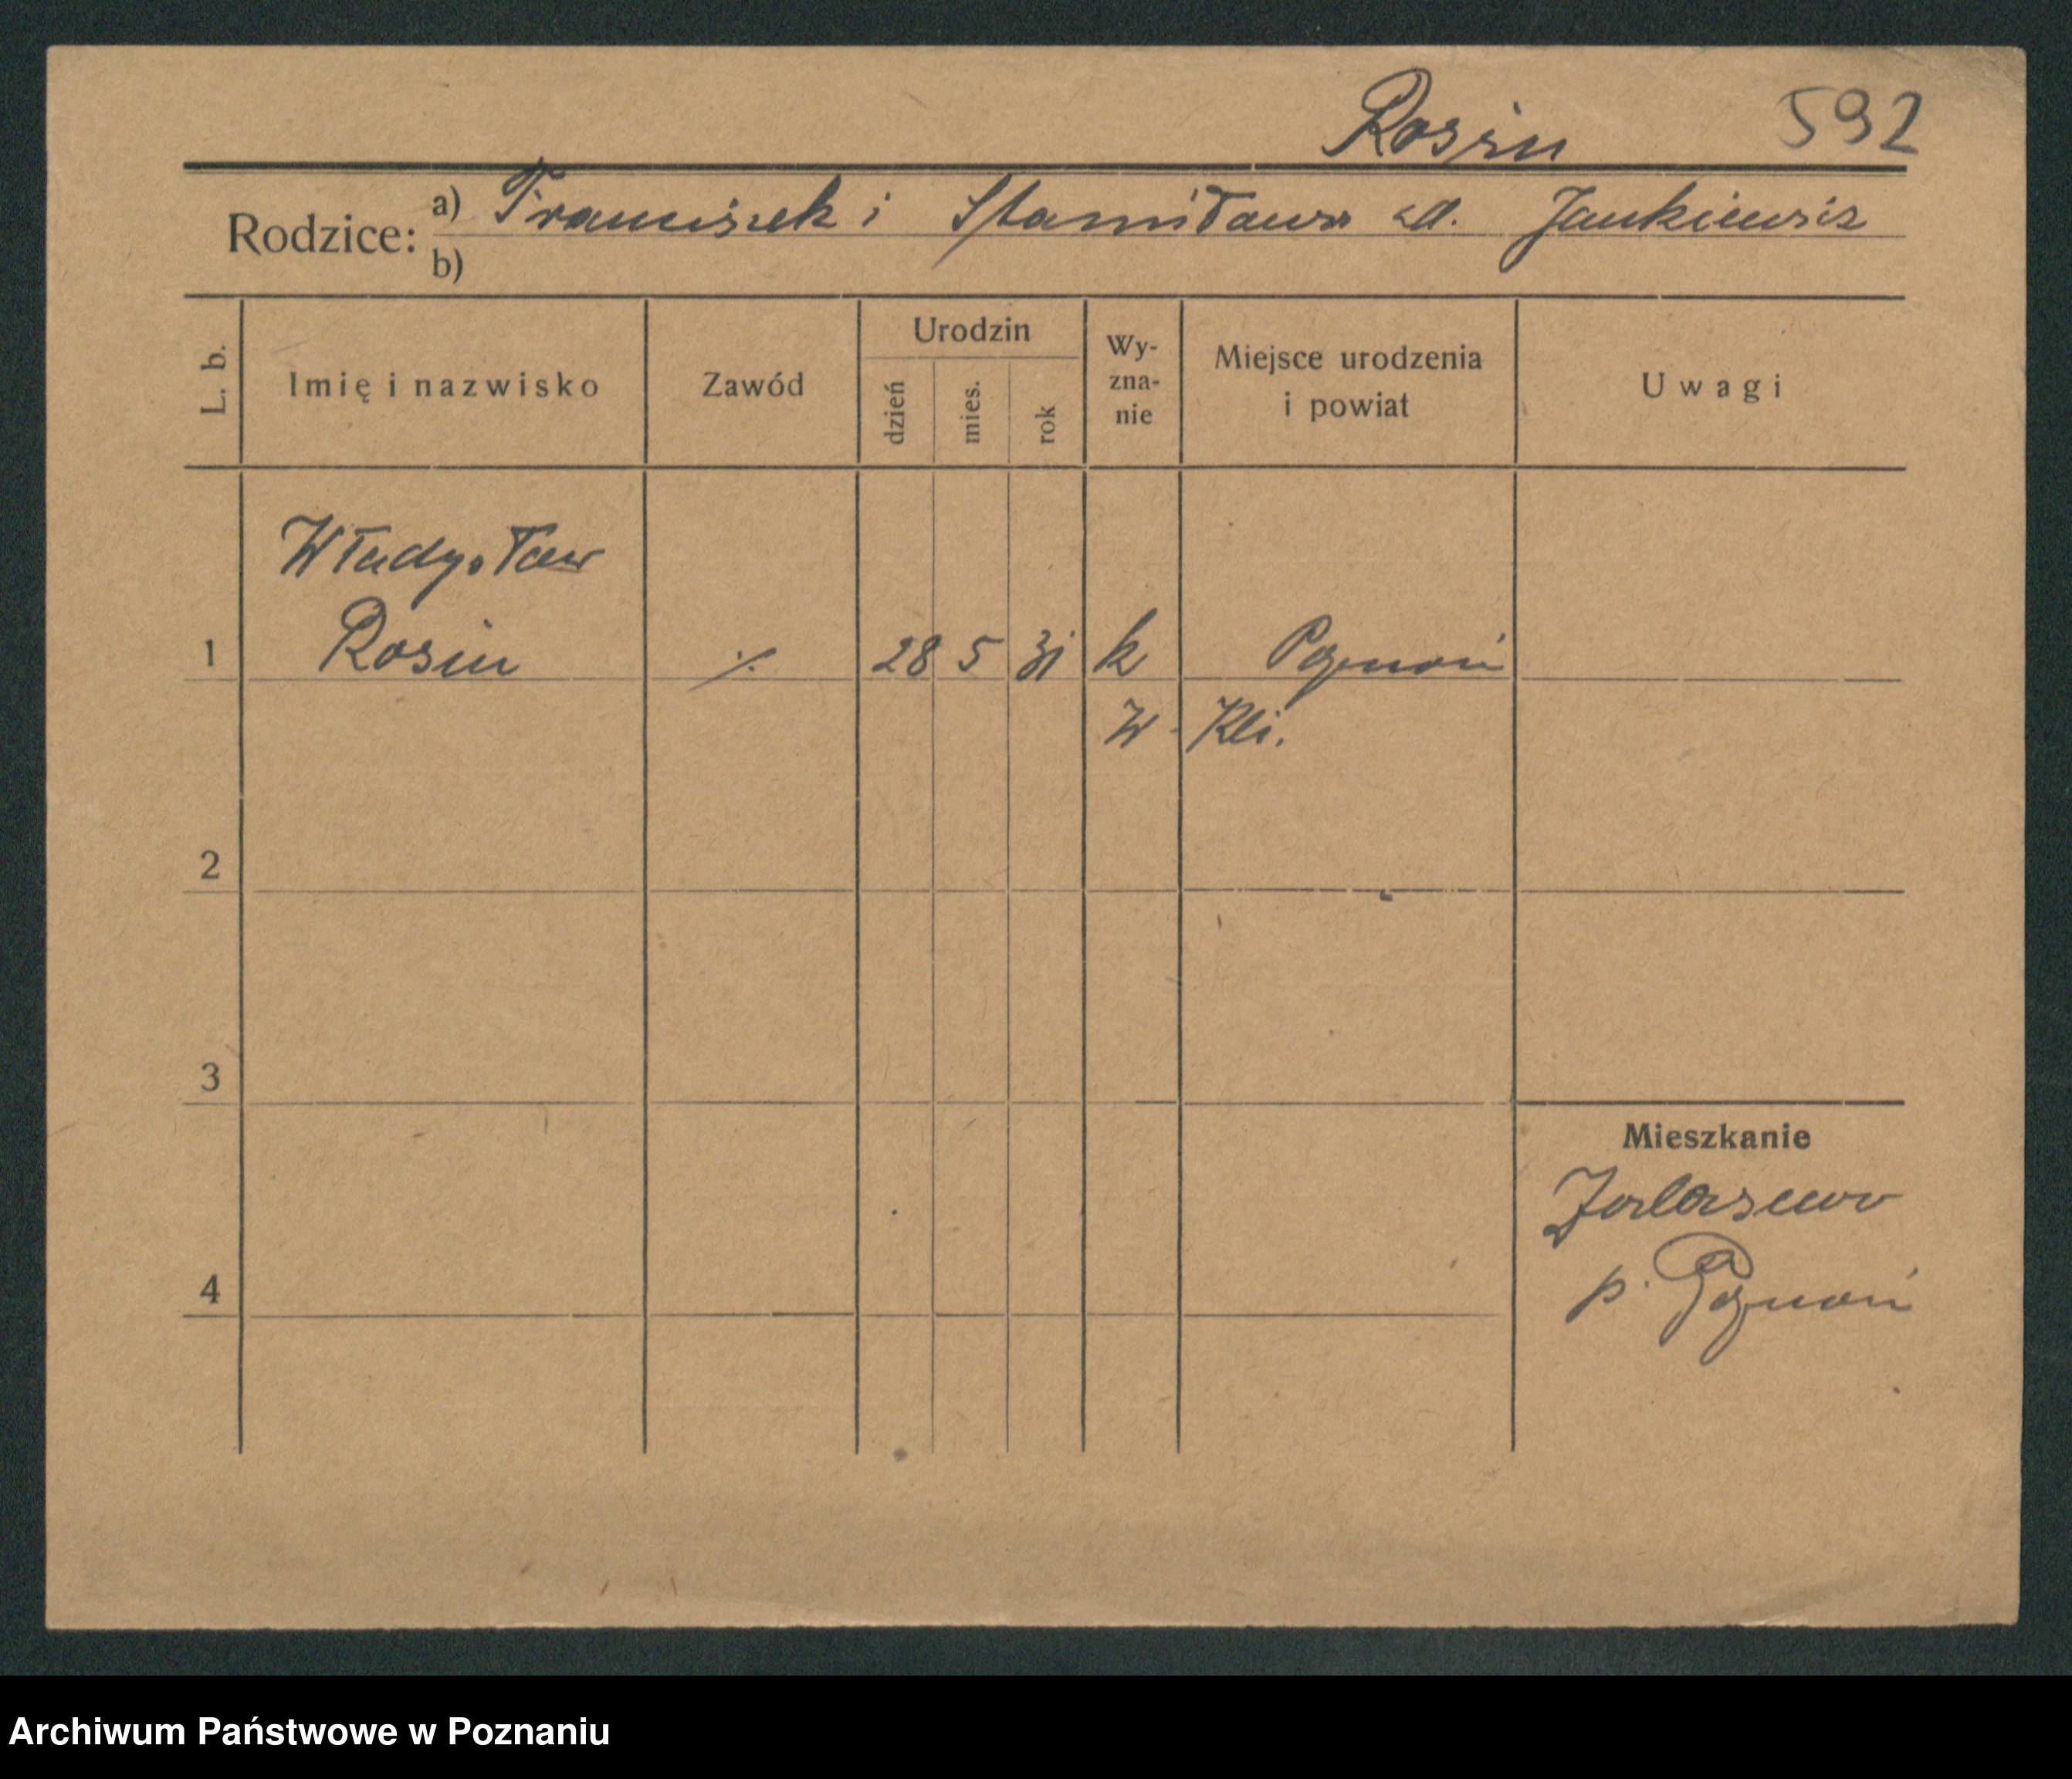 Rosin 592
Rodzice: a) Franciszek i Stanisława zd. Jankiewicz
b)
L. b. Imię i nazwisko Zawód Urodzin dzień mies. rok Wy-zna-nie Miejsce urodzenia i powiat Uwagi
Władysław
1 Rosin ·/. 28 5 31 k Poznań
W Kli.
2
3
Mieszkanie
4 p. Poznań
Archiwum Państwowe w Poznaniu